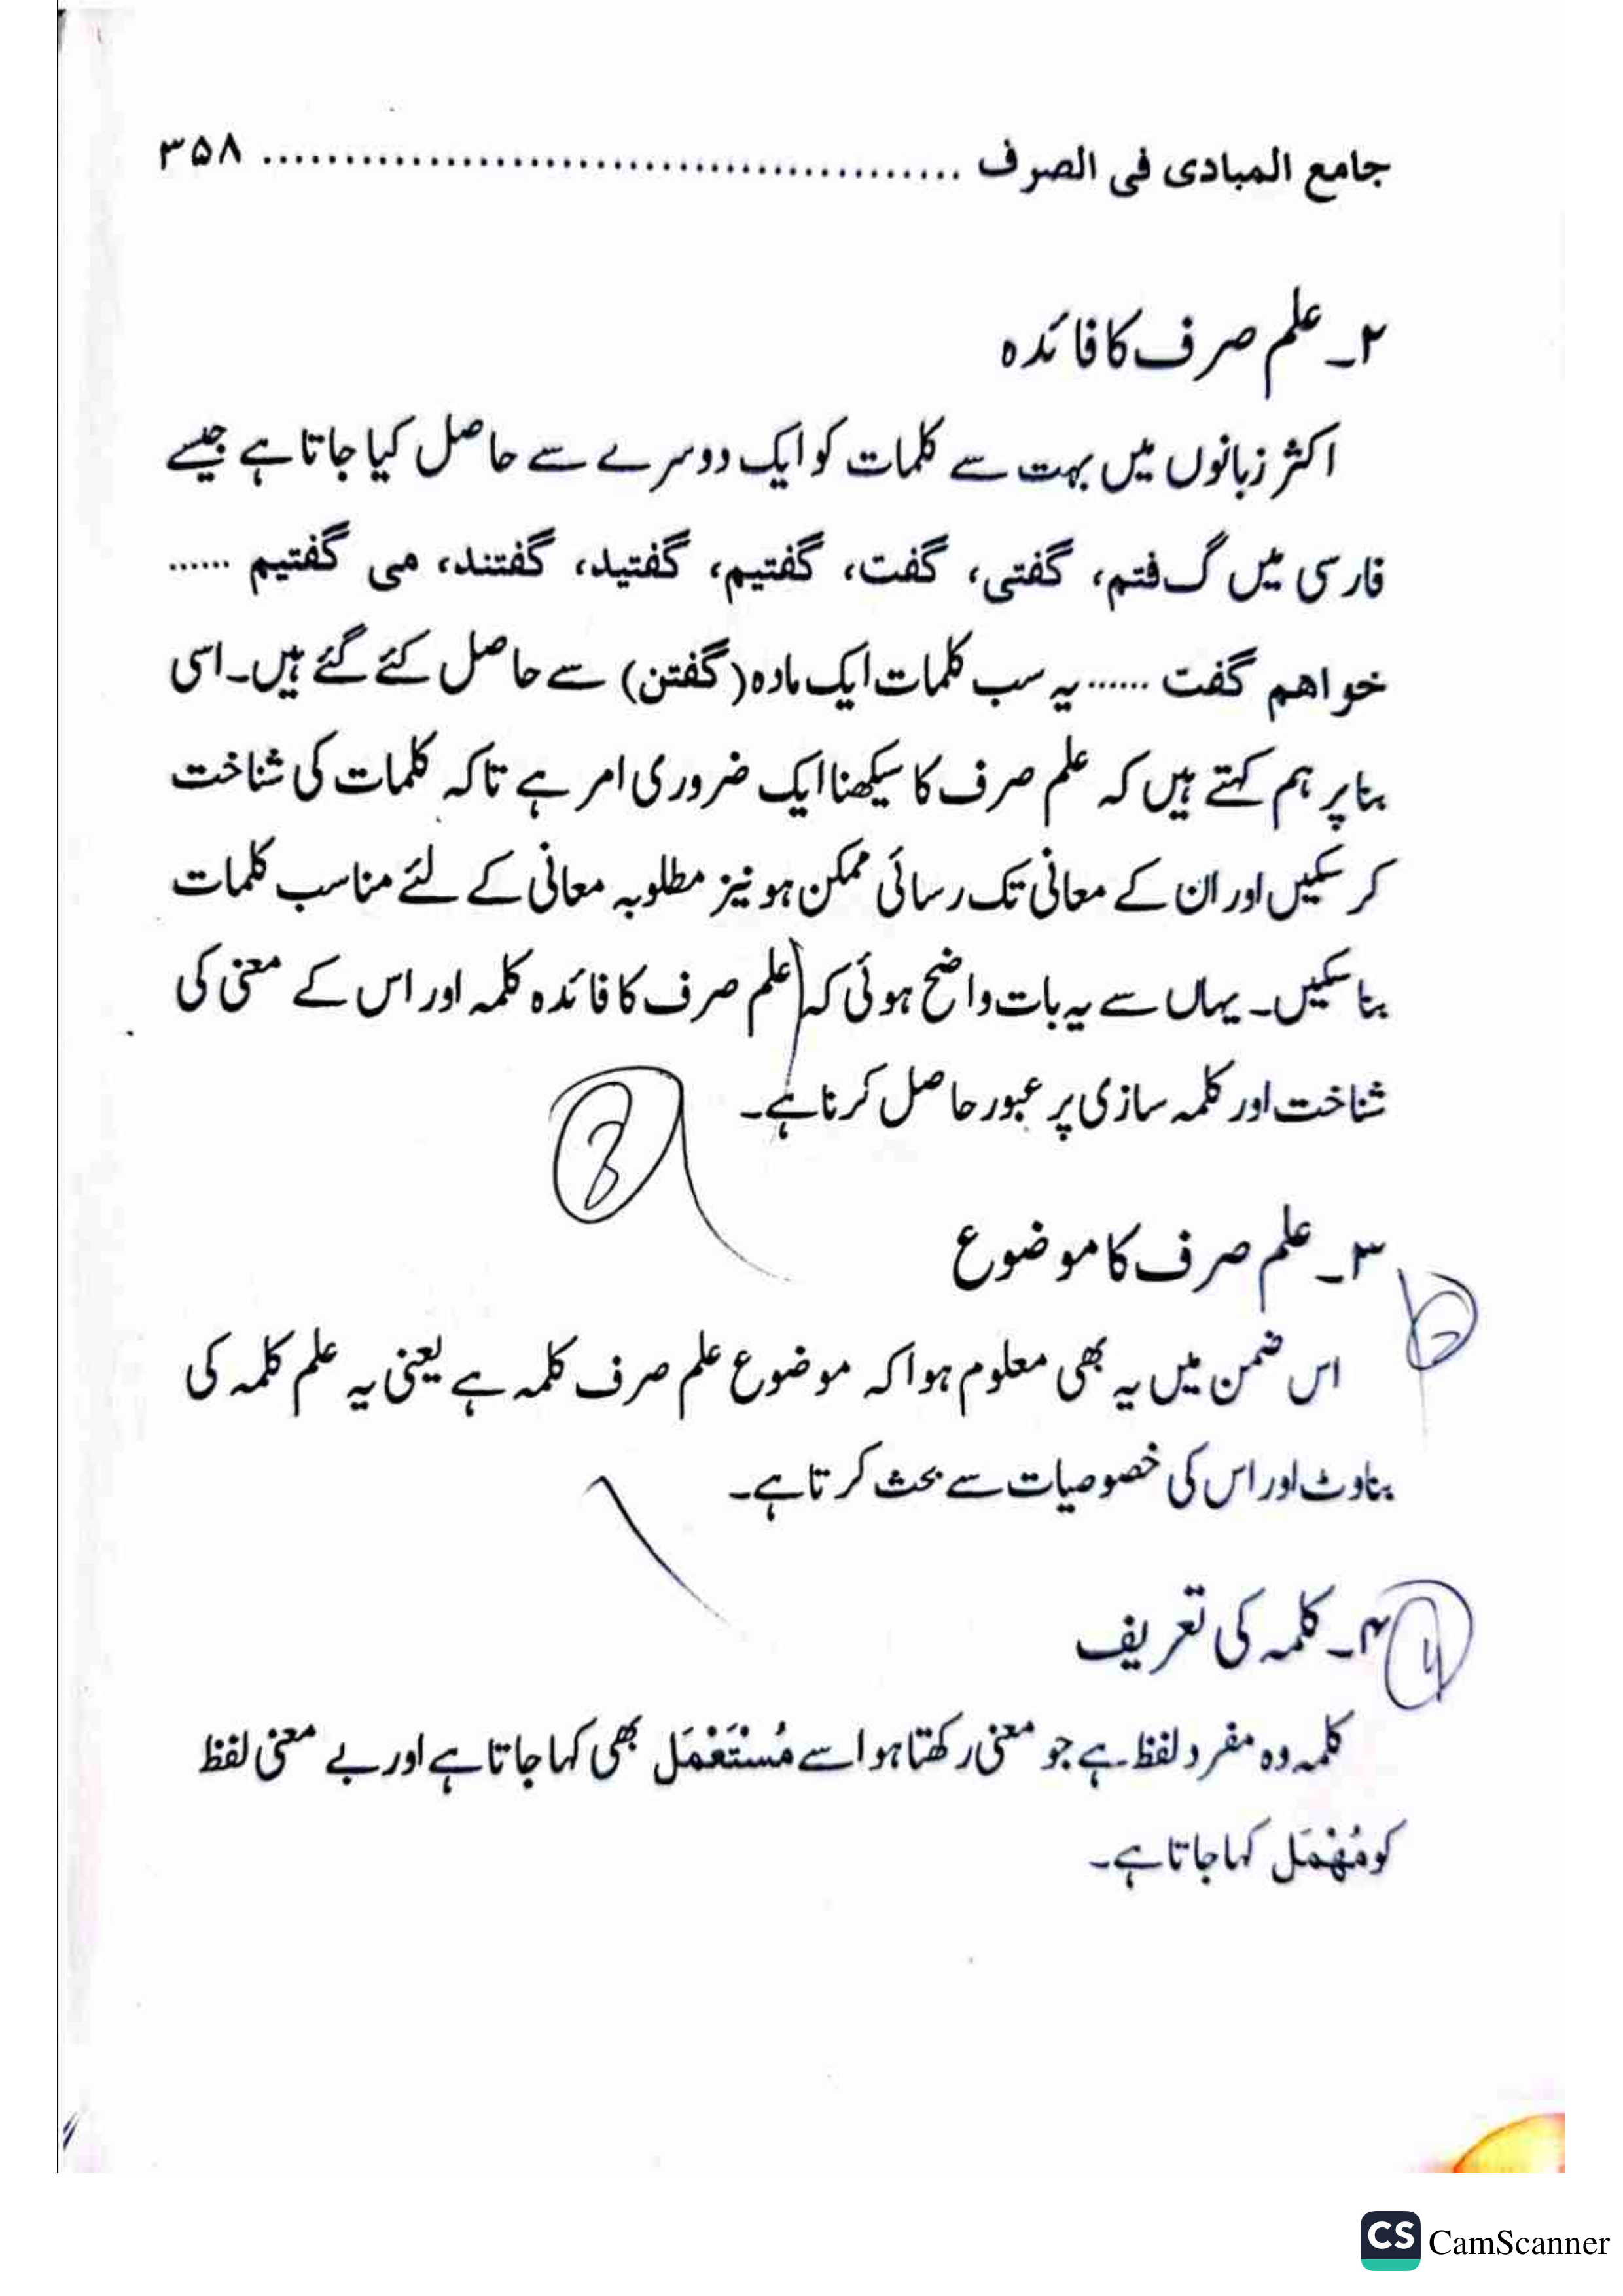 جامع المبادی فی الصرف ............................................ ۳۵۸
۲۔ علم صرف کا فائدہ
اکثر زبانوں میں بہت سے کلمات کو ایک دوسرے سے حاصل کیا جاتا ہے جیسے
فارسی میں گ فتم، گفتی، گفت، گفتیم، گفتید، گفتند، می گفتیم ......
خواهم گفت ...... یہ سب کلمات ایک مادہ (گفتن) سے حاصل کئے گئے ہیں۔ اسی
بنا پر ہم کہتے ہیں کہ علم صرف کا سیکھنا ایک ضروری امر ہے تاکہ کلمات کی شناخت
کر سکیں اور ان کے معانی تک رسائی ممکن ہو نیز مطلوبہ معانی کے لئے مناسب کلمات
بنا سکیں۔ یہاں سے یہ بات واضح ہوئی کہ علم صرف کا فائدہ کلمہ اور اس کے معنی کی
شناخت اور کلمہ سازی پر عبور حاصل کرنا ہے۔
۳۔ علم صرف کا موضوع
اس ضمن میں یہ بھی معلوم ہوا کہ موضوع علم صرف کلمہ ہے یعنی یہ علم کلمہ کی
بناوٹ اور اس کی خصوصیات سے بحث کرتا ہے۔
۴۔ کلمہ کی تعریف
کلمہ وہ مفرد لفظ ہے جو معنی رکھتا ہو اسے مُسْتَعْمَل بھی کہا جاتا ہے اور بے معنی لفظ
کو مُهْمَل کہا جاتا ہے۔
CS CamScanner